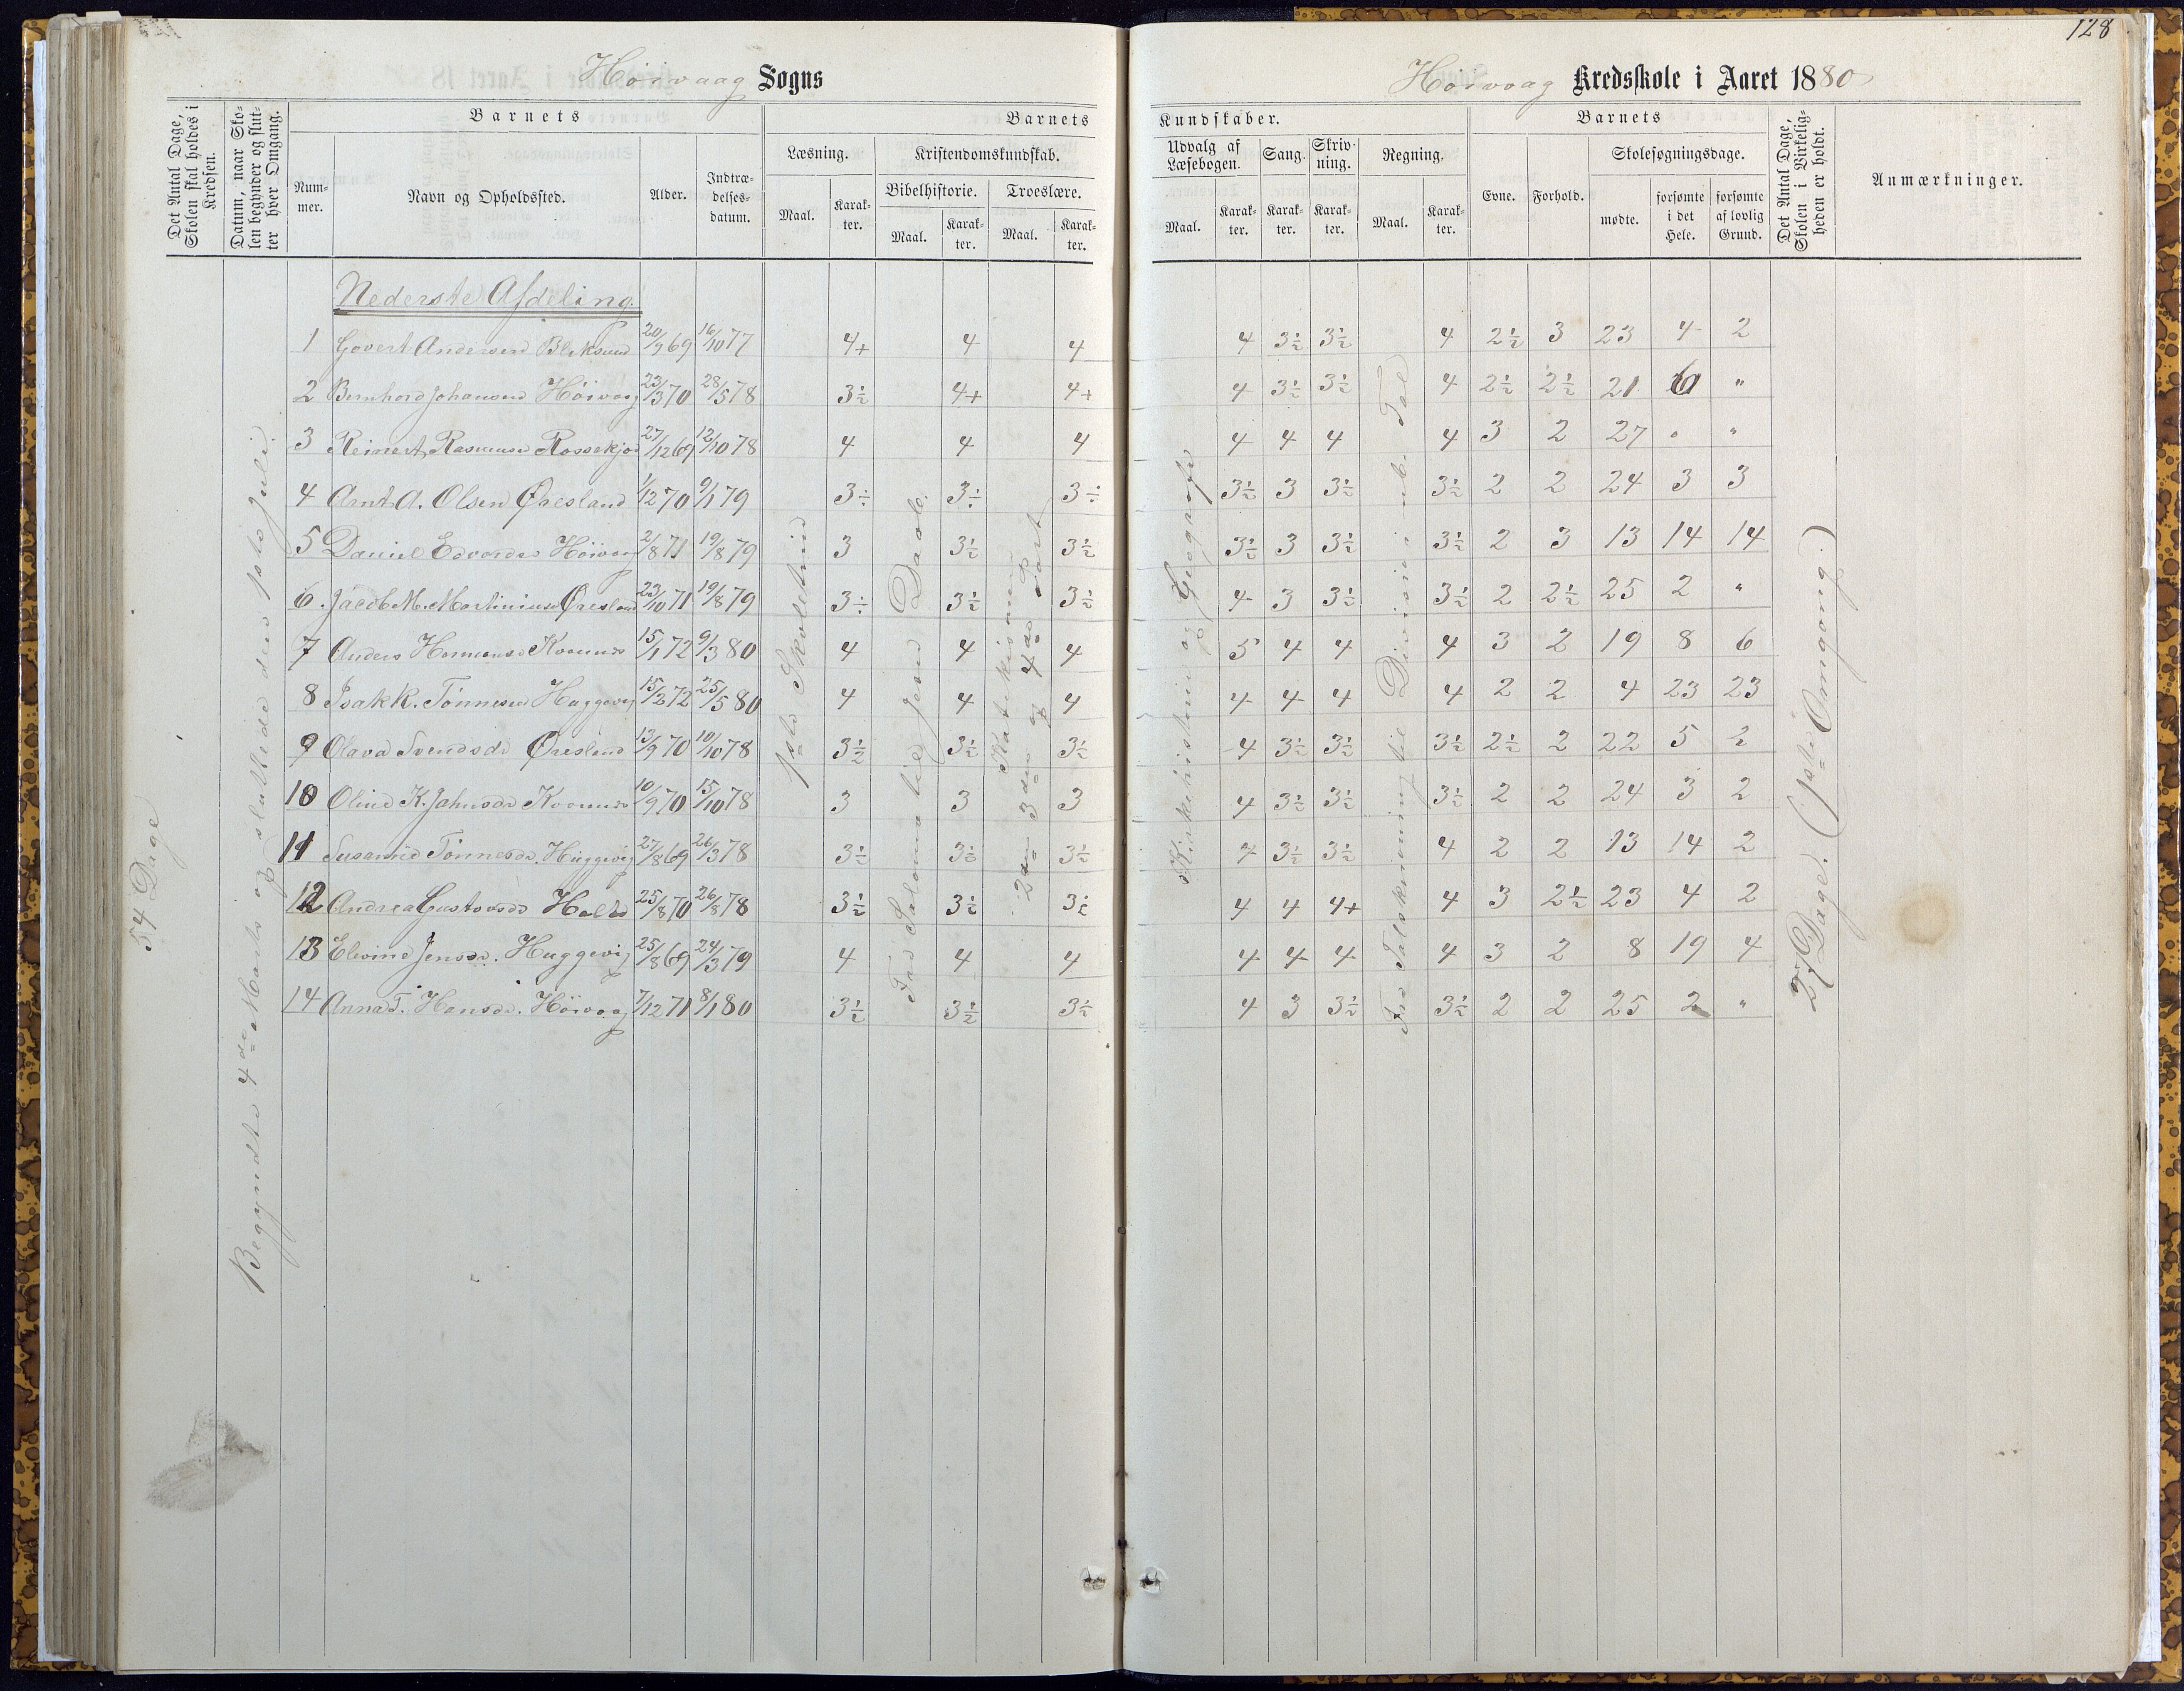 128
Höivaag Sogns
Höivaag Kredsskole i Aaret 1880
Det Antal Dage, Skolen skal holdes i Kredsen.
Datum, naar Skolen begynder og slutter hver Omgang.
Barnets
Nummer.
Navn og Opholdssted.
Alder.
Indtrædelsesdatum.
Barnets
Læsning.
Maal.
Karakter.
Kristendomskundskab.
Bibelhistorie.
Maal.
Karakter.
Troeslære.
Maal.
Karakter.
Kundskaber.
Udvalg af Læsebogen.
Maal.
Karakter.
Sang.
Karakter.
Skrivning.
Karakter.
Regning.
Maal.
Karakter.
Barnets
Evne.
Forhold.
Skolesøgningsdage.
mødte.
forsømte i det Hele.
forsømte af lovlig Grund.
Det Antal Dage, Skolen i Virkeligheden er holdt.
Anmærkninger.
54 Dage
Begyndte 4de Marts og sluttede den 1ste Juli.
1ste Skoletrin
Fra Salomo til Jesu Daab.
Katekismus
2den 3die og 4de Part
Kirkehistorie og Geografi
Fra Talskrivning til Division i ub. Tal
27 Dage. (1ste Omgang.)
Nederste Afdeling.
1 Govert Andersen Bliksund 20/9 69 16/10 77 4+ 4 4 4 3½ 3½ 4 2½ 3 23 4 2
2 Bernhard Johansen Höivaag 23/3 70 28/5 78 3½ 4+ 4+ 4 3½ 3½ 4 2½ 2½ 21 6 "
3 Reinert Rasmusen Rossekjær 27/12 69 12/10 78 4 4 4 4 4 4 4 3 2 27 " "
4 Arnt A. Olsen Øresland 1/12 70 9/1 79 3÷ 3÷ 3÷ 3½ 3 3½ 3½ 2 2 24 3 3
5 Daniel Edvardsen Höivaag 2/8 71 19/8 79 3 3½ 3½ 3½ 3 3½ 3½ 2 3 13 14 14
6. Jacob M. Martinius Øresland 23/10 71 19/8 79 3÷ 3½ 3½ 4 3 3½ 3½ 2 2½ 25 2 "
7 Anders Hermanse 15/1 72 9/3 80 4 4 4 5 4 4 4 3 2 19 8 6
8 Isak K. Tönnesen Huggevig 15/2 72 25/5 80 4 4 4 4 4 4 4 2 2 4 23 23
9 Olava Svendsdr Øresland 13/9 70 10/10 78 3½ 3½ 3½ 4 3½ 3½ 3½ 2½ 2 22 5 2
10 Oline K. Jahnsdr 10/9 70 15/10 78 3 3 3 4 3½ 3½ 3½ 2 2 24 3 2
11 Susanne Tönnesdr. Huggevig 27/8 69 26/3 78 3½ 3½ 3½ 4 3½ 3½ 4 2 2 13 14 2
12 Andrea Gustavsdr 25/8 70 26/8 78 3½ 3½ 3½ 4 4 4+ 4 3 2½ 23 4 2
13 Elevine Jensdr. Huggevig 25/8 69 24/3 79 4 4 4 4 4 4 4 3 2 8 19 4
14 Anna T. Hansdr. Höivaag 7/12 71 8/1 80 3½ 3½ 3½ 4 3 3½ 3½ 2 2 25 2 "